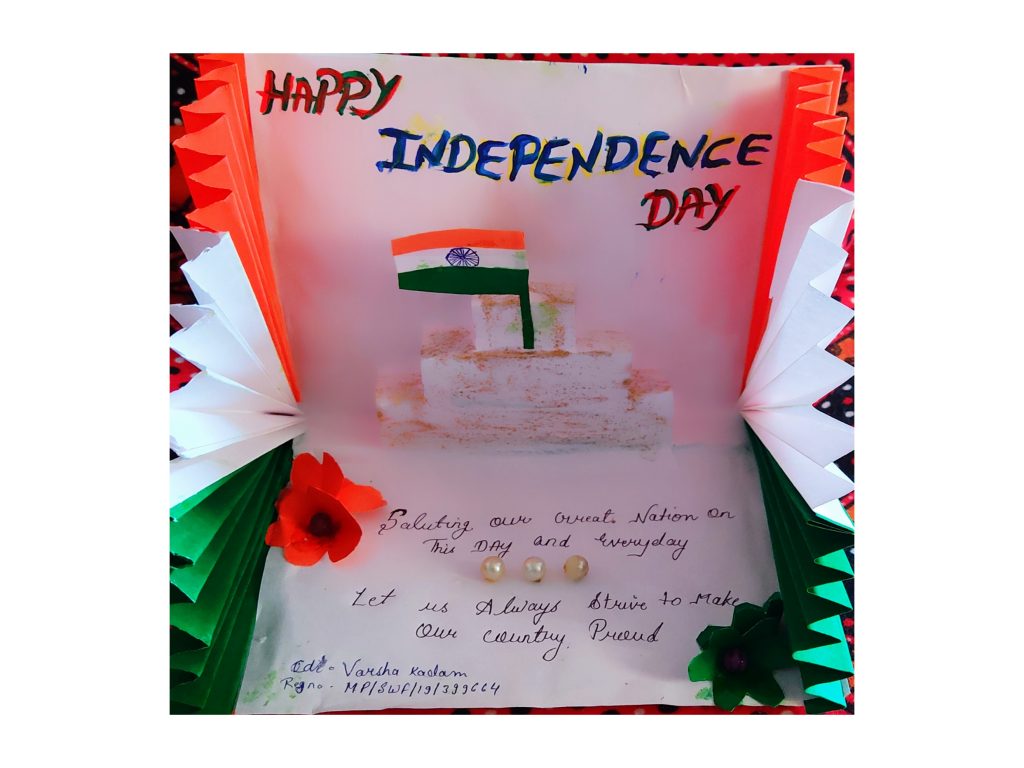 HAPPY
INDEPENDENCE
DAY
Saluting our Great Nation on
This DAY and Everyday
Let us Always Strive to Make
Our country Proud
Cdt - Varsha Kadam
Regno - MP/SWF/19/399664